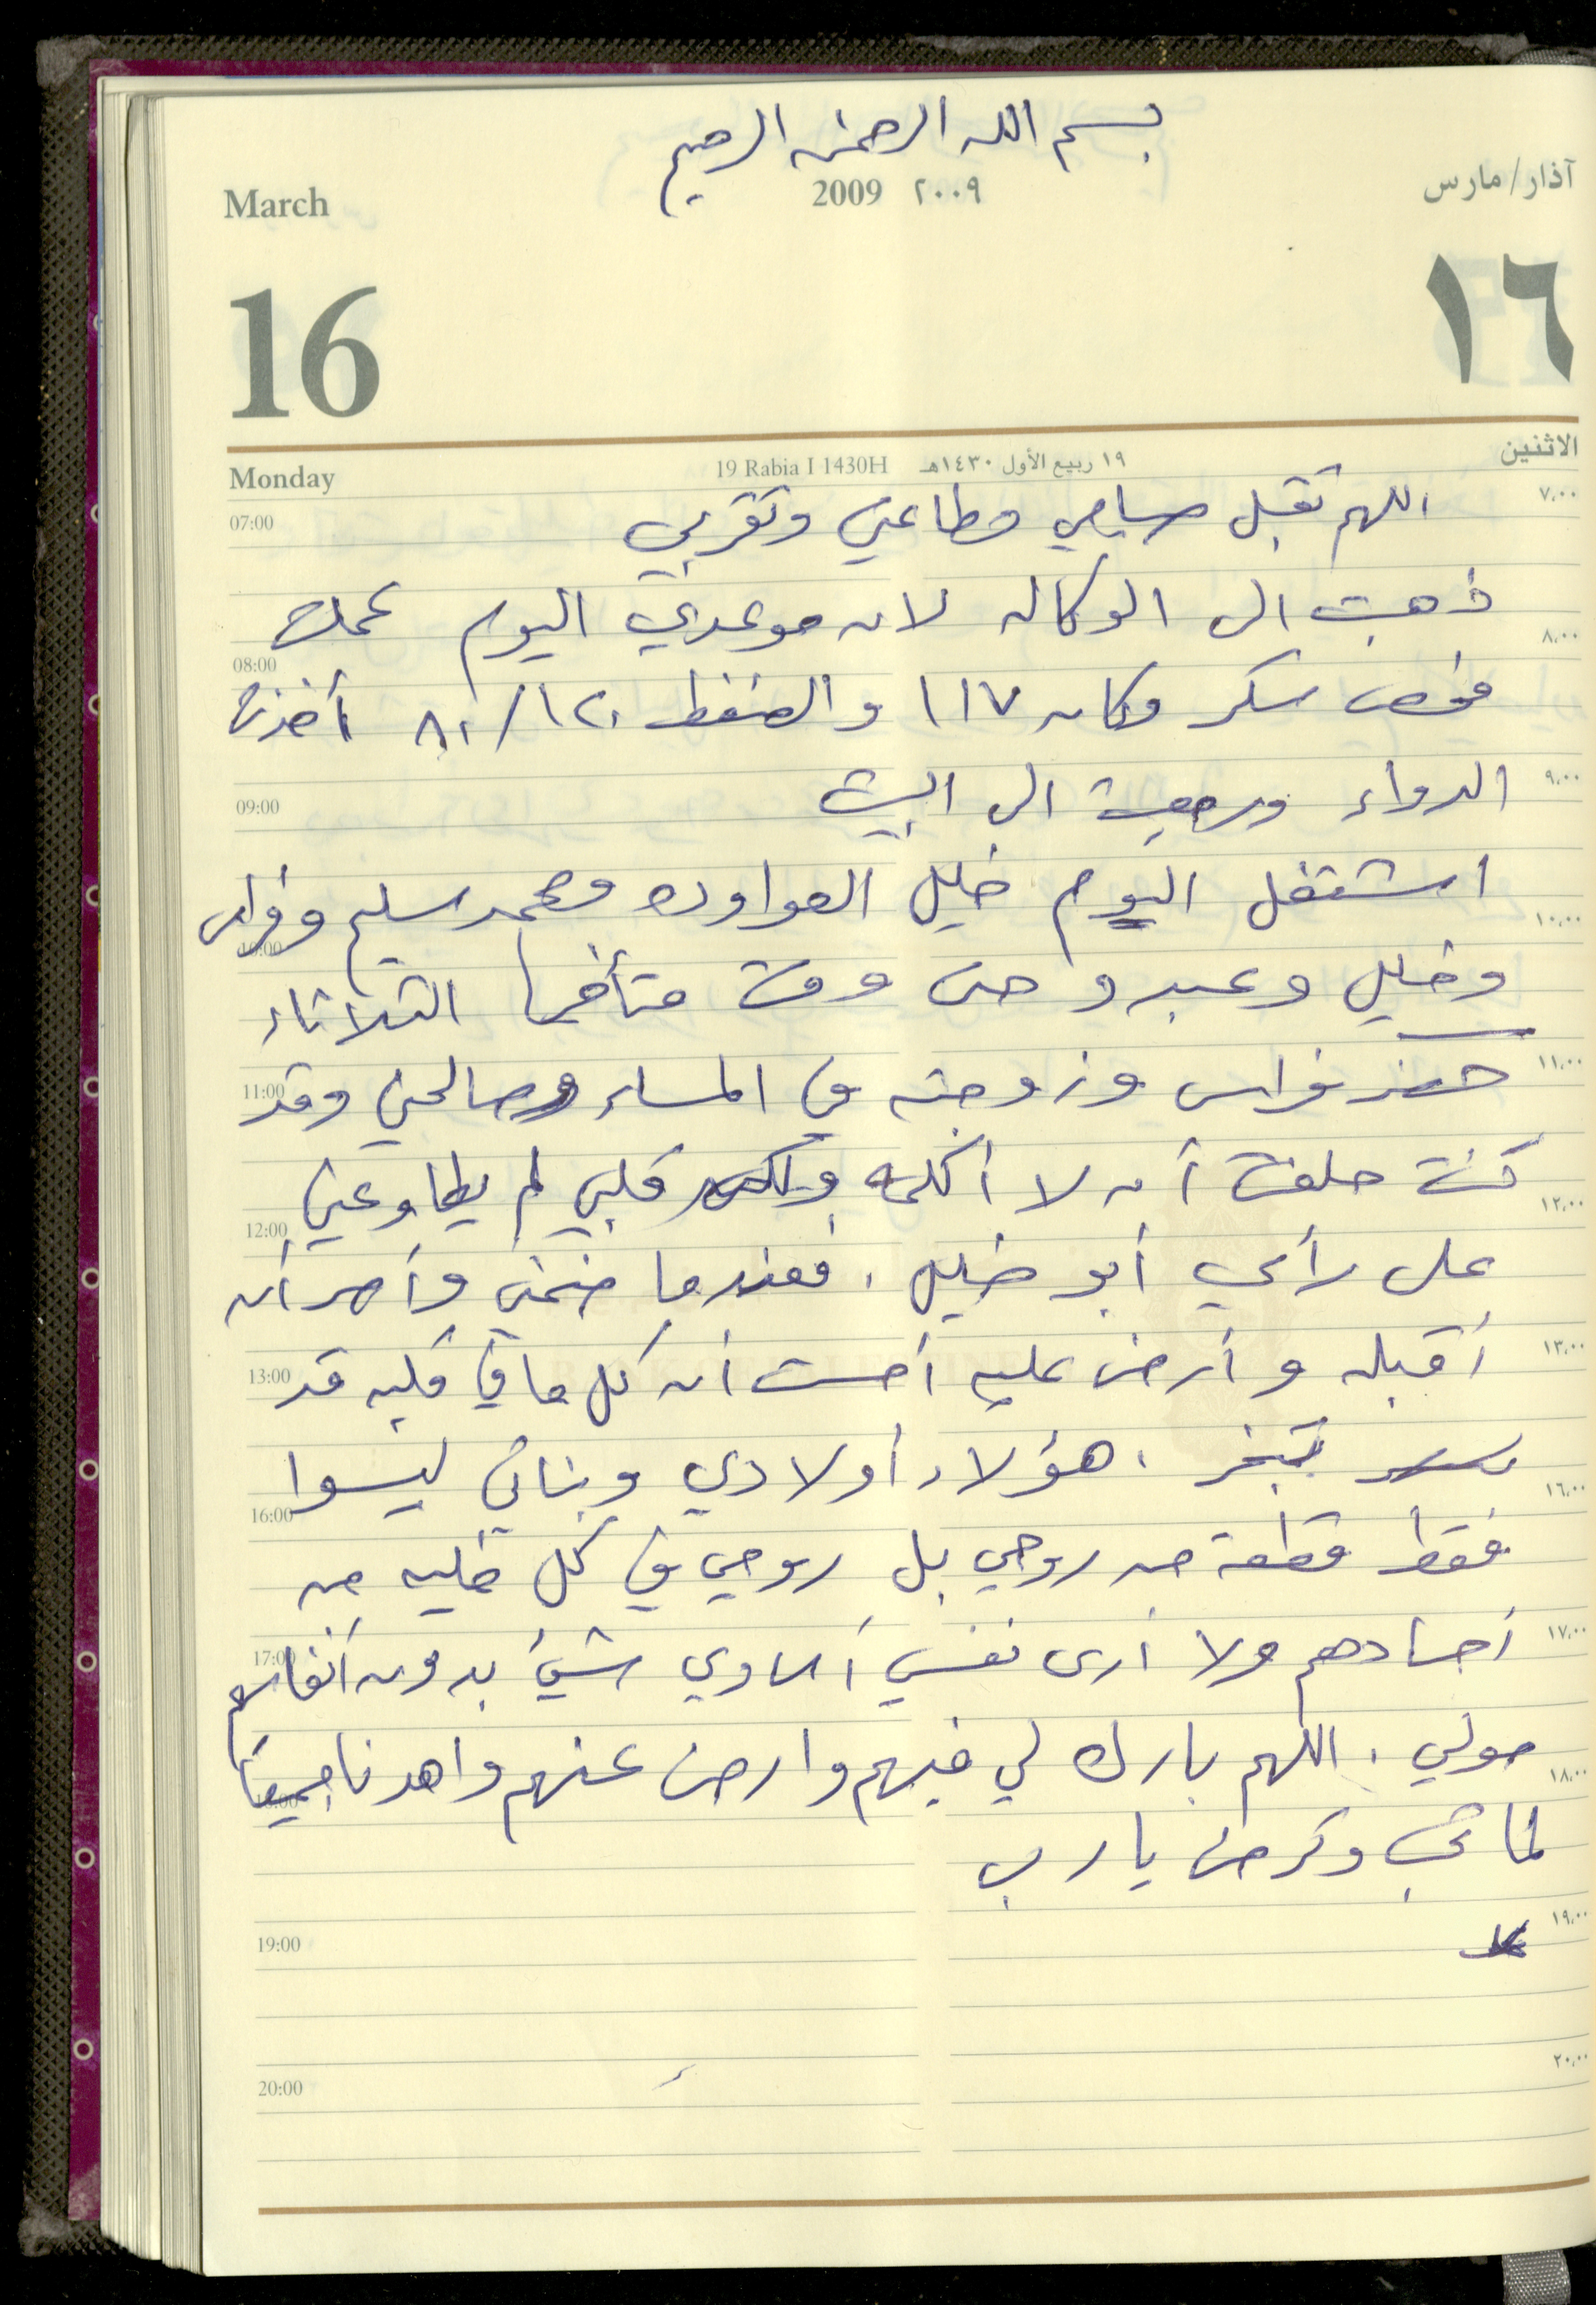 بسم الله الرحمن الرحيم
March
2009 ٢٠٠٩
آذار/مارس
16
١٦
Monday
19 Rabia I 1430H ١٩ ربيع الأول ١٤٣٠هـ
الاثنين
07:00 ٧,٠٠
اللهم تقبل صيامي وطاعتي وتقربي
ذهبت الى الوكاله لان موعدي اليوم عملت
08:00 ٨,٠٠
فحص سكر وكان ١١٧ والضغط ١٢٠/٨٠ أخذت
09:00 ٩,٠٠
الدواء ورجعت الى البيت
اشتغل اليوم خليل العواوده ومحمد سليم وفراس
10:00 ١٠,٠٠
وخليل وعبد و حتى وقت متأخر الثلاثاء
11:00 ١١,٠٠
حضر فراس وزوجته في المساء وصالحني وقد
كنت حلفت أن لا أكلمه ولكن قلبي لم يطاوعني
12:00 ١٢,٠٠
على رأي أبو خليل . فعندما ضمني وأصر أن
13:00 ١٣,٠٠
أقبله وأرضى عليه أحسست أن كل ما في قلبه قد
تبخر . هؤلاء أولادي وبناتي ليسوا
16:00 ١٦,٠٠
فقط قطعة من روحي بل روحي في كل خليه من
17:00 ١٧,٠٠
أجسادهم ولا أرى نفسي أساوي شيئ بدون أنفاسهم
حولي . اللهم بارك لي فيهم وارض عنهم واهدنا جميعا
18:00 ١٨,٠٠
لما تحب وترضى يا رب
19:00 ١٩,٠٠
20:00 ٢٠,٠٠